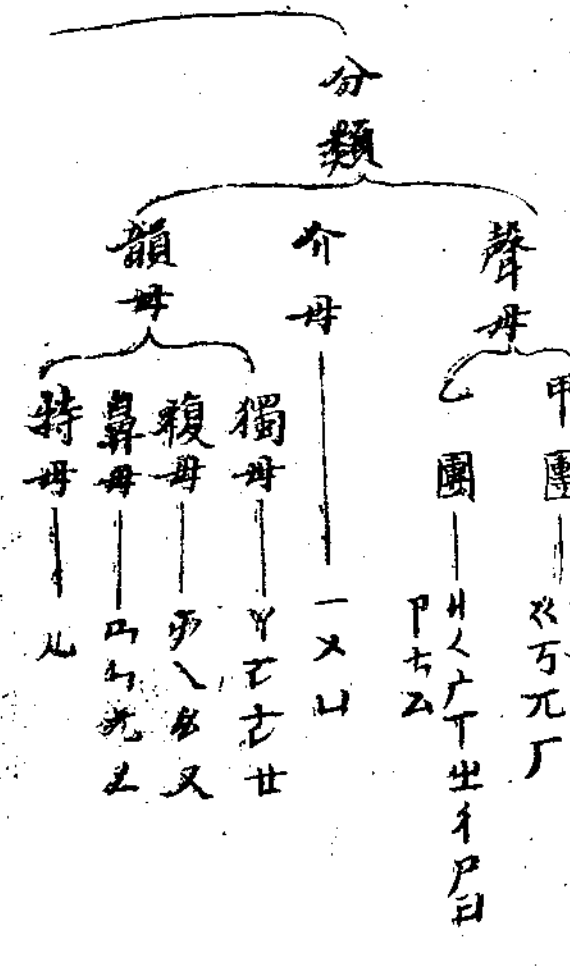 分類
聲母
甲團
ㄍㄎㄫㄏ
乙團
ㄐㄑㄬㄒㄓㄔㄕㄖ
ㄗㄘㄙ
介母
ㄧㄨㄩ
韻母
獨母
ㄚㄛㄜㄝ
複母
ㄞㄟㄠㄡ
鼻母
ㄢㄣㄤㄥ
特母
ㄦ